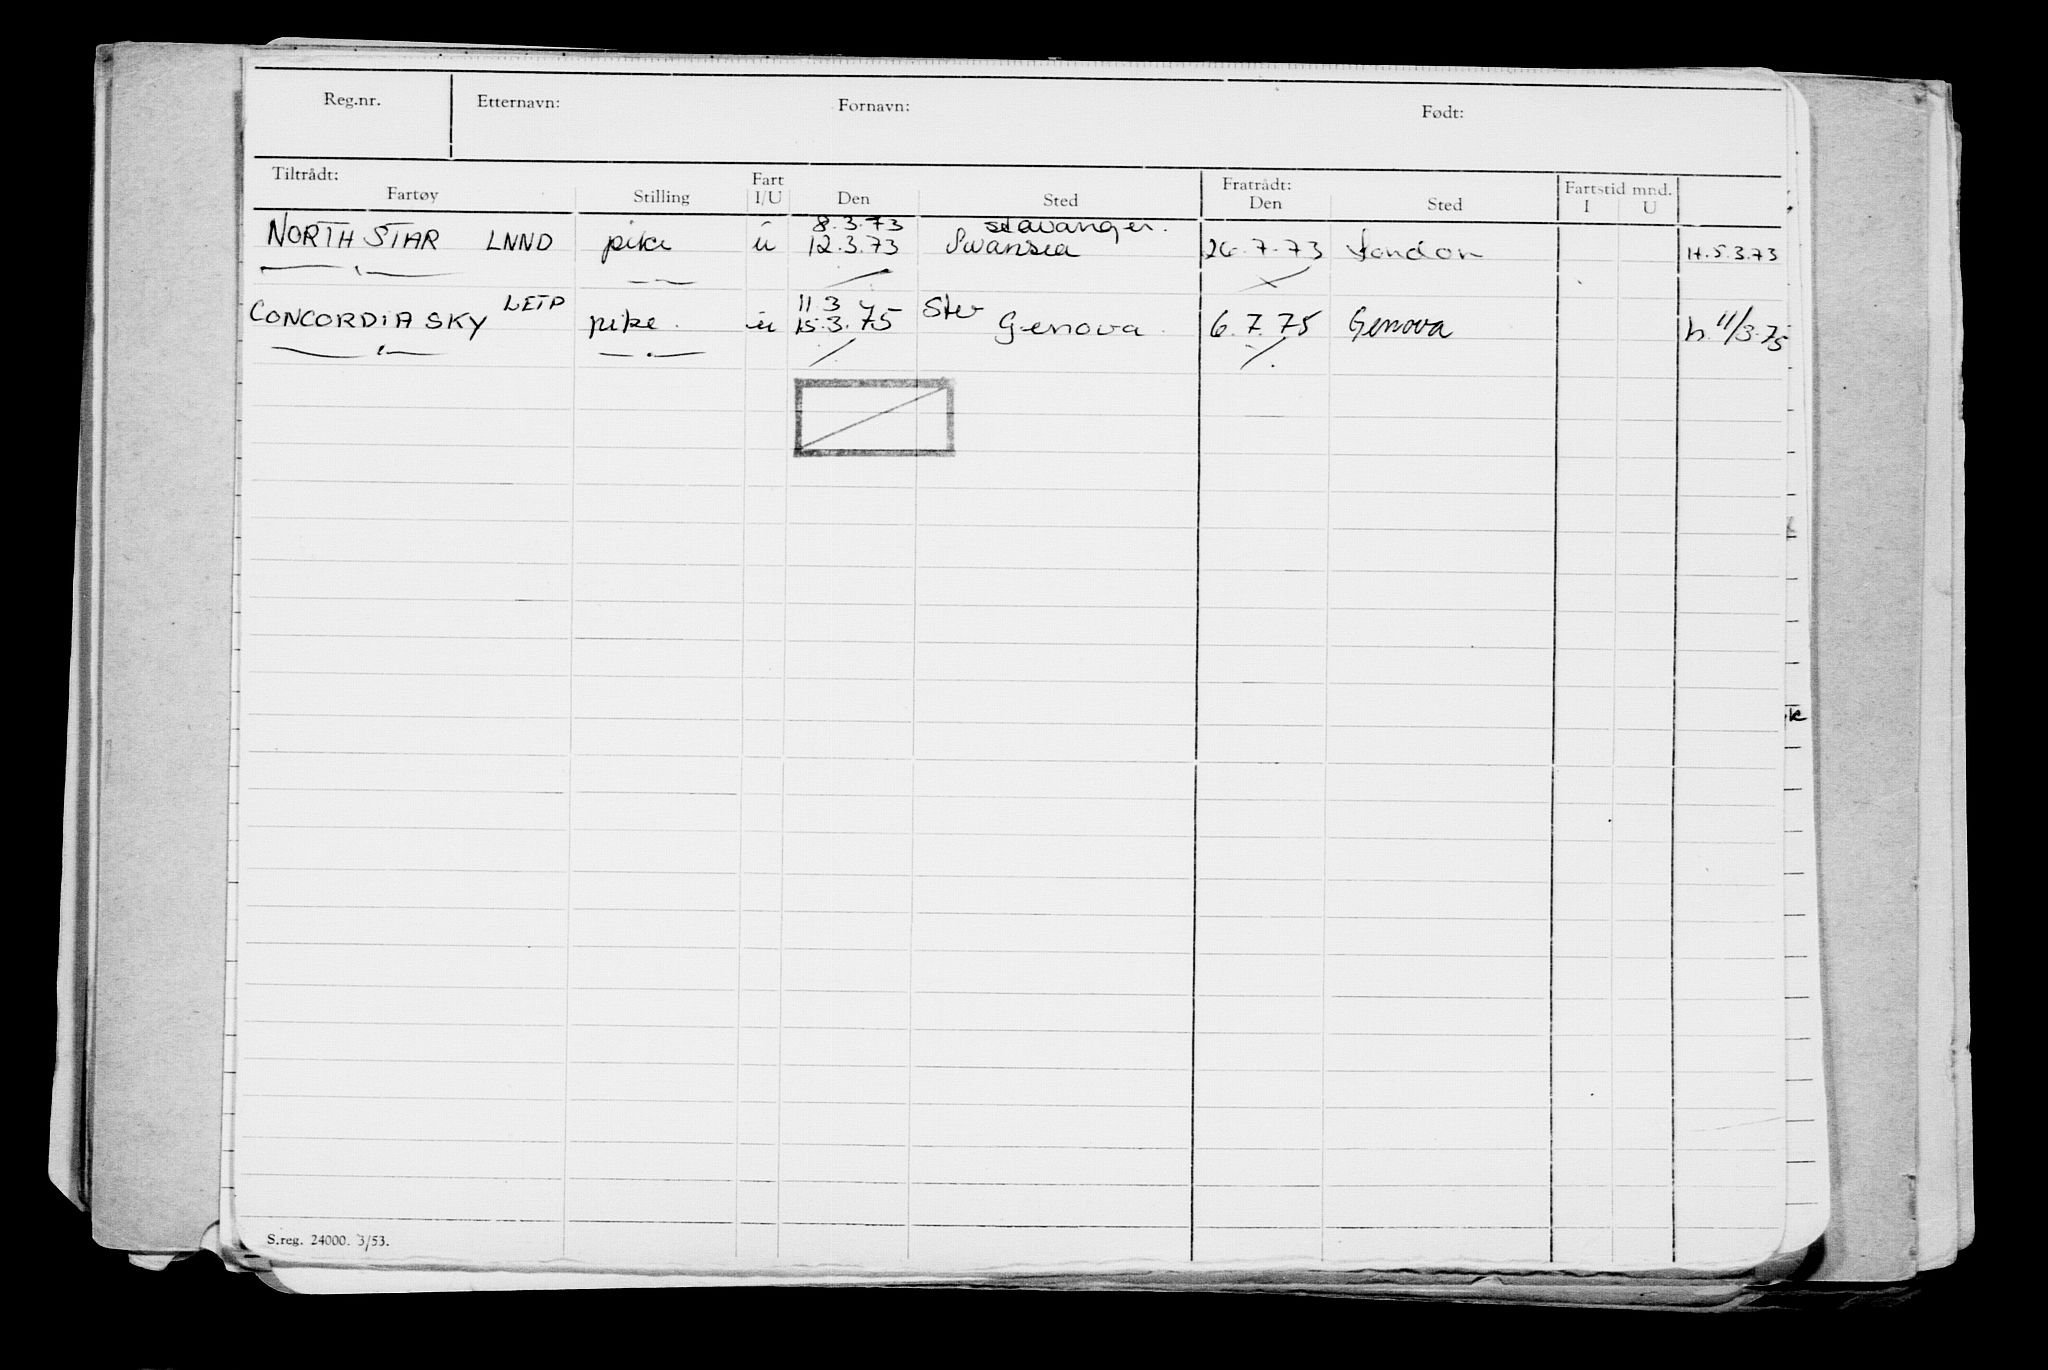 Reg.nr. Etternavn: Fornavn: Født:
Tiltrådt: Fratrådt:
Fartøy Stilling Fart I/U Den Sted Den Sted Fartstid mnd. I U
8.3.73 Stavanger.
NORTH STAR LNND pike u 12.3.73 Swansea 26.7.73 London H.5.3.73
LETD 11.3 Stav
CONCORDIA SKY pike. u 15.3.75 Genova. 6.7.75 Genova h.11/3.75
k
S.reg. 24000. 3/53.